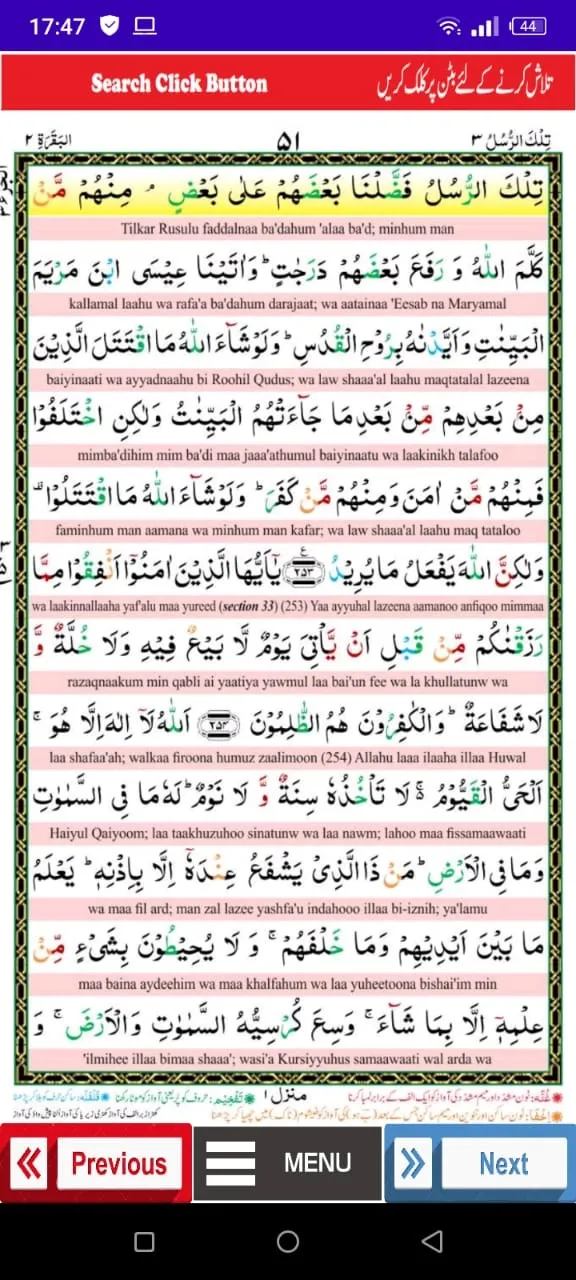 17:47
44
Search Click Button
تلاش کرنے کے لئے بٹن پر کلک کریں
تِلْكَ الرُّسُلُ ٣
٥١
الْبَقَرَة ٢
تِلْكَ الرُّسُلُ فَضَّلْنَا بَعْضَهُمْ عَلٰى بَعْضٍ ۘ مِنْهُمْ مَّنْ
Tilkar Rusulu faddalnaa ba'dahum 'alaa ba'd; minhum man
كَلَّمَ اللّٰهُ وَ رَفَعَ بَعْضَهُمْ دَرَجٰتٍ ؕ وَاٰتَيْنَا عِيْسَى ابْنَ مَرْيَمَ
kallamal laahu wa rafa'a ba'dahum darajaat; wa aatainaa 'Eesab na Maryamal
الْبَيِّنٰتِ وَاَيَّدْنٰهُ بِرُوْحِ الْقُدُسِ ؕ وَلَوْ شَآءَ اللّٰهُ مَا اقْتَتَلَ الَّذِيْنَ
baiyinaati wa ayyadnaahu bi Roohil Qudus; wa law shaaa'al laahu maqtatalal lazeena
مِنْۢ بَعْدِهِمْ مِّنْۢ بَعْدِ مَا جَآءَتْهُمُ الْبَيِّنٰتُ وَلٰكِنِ اخْتَلَفُوْا
mimba'dihim mim ba'di maa jaaa'athumul baiyinaatu wa laakinikh talafoo
فَمِنْهُمْ مَّنْ اٰمَنَ وَمِنْهُمْ مَّنْ كَفَرَ ؕ وَلَوْ شَآءَ اللّٰهُ مَا اقْتَتَلُوْا ۫
faminhum man aamana wa minhum man kafar; wa law shaaa'al laahu maq tataloo
وَلٰكِنَّ اللّٰهَ يَفْعَلُ مَا يُرِيْدُ ع ٢٥٣ يٰۤاَيُّهَا الَّذِيْنَ اٰمَنُوْۤا اَنْفِقُوْا مِمَّا
wa laakinnallaaha yaf'alu maa yureed (section 33) (253) Yaa ayyuhal lazeena aamanoo anfiqoo mimmaa
رَزَقْنٰكُمْ مِّنْ قَبْلِ اَنْ يَّاْتِيَ يَوْمٌ لَّا بَيْعٌ فِيْهِ وَلَا خُلَّةٌ وَّ
razaqnaakum min qabli ai yaatiya yawmul laa bai'un fee wa la khullatunw wa
لَا شَفَاعَةٌ ؕ وَالْكٰفِرُوْنَ هُمُ الظّٰلِمُوْنَ ٢٥٤ اَللّٰهُ لَاۤ اِلٰهَ اِلَّا هُوَ ۚ
laa shafaa'ah; walkaa firoona humuz zaalimoon (254) Allahu laaa ilaaha illaa Huwal
اَلْحَيُّ الْقَيُّوْمُ ۚ لَا تَاْخُذُهٗ سِنَةٌ وَّ لَا نَوْمٌ ؕ لَهٗ مَا فِي السَّمٰوٰتِ
Haiyul Qaiyoom; laa taakhuzuhoo sinatunw wa laa nawm; lahoo maa fissamaawaati
وَمَا فِي الْاَرْضِ ؕ مَنْ ذَا الَّذِيْ يَشْفَعُ عِنْدَهٗۤ اِلَّا بِاِذْنِهٖ ؕ يَعْلَمُ
wa maa fil ard; man zal lazee yashfa'u indahooo illaa bi-iznih; ya'lamu
مَا بَيْنَ اَيْدِيْهِمْ وَمَا خَلْفَهُمْ ۚ وَ لَا يُحِيْطُوْنَ بِشَيْءٍ مِّنْ
maa baina aydeehim wa maa khalfahum wa laa yuheetoona bishai'im min
عِلْمِهٖۤ اِلَّا بِمَا شَآءَ ۚ وَسِعَ كُرْسِيُّهُ السَّمٰوٰتِ وَالْاَرْضَ ۚ وَ
'ilmihee illaa bimaa shaaa'; wasi'a Kursiyyuhus samaawaati wal arda wa
منزل ١
Previous
MENU
Next